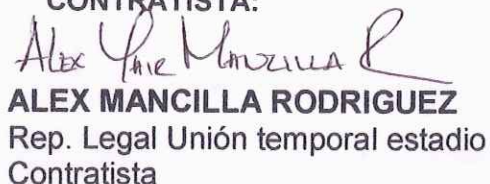 CONTRATISTA:
Alex Yair Manzilla R
ALEX MANCILLA RODRIGUEZ
Rep. Legal Unión temporal estadio
Contratista